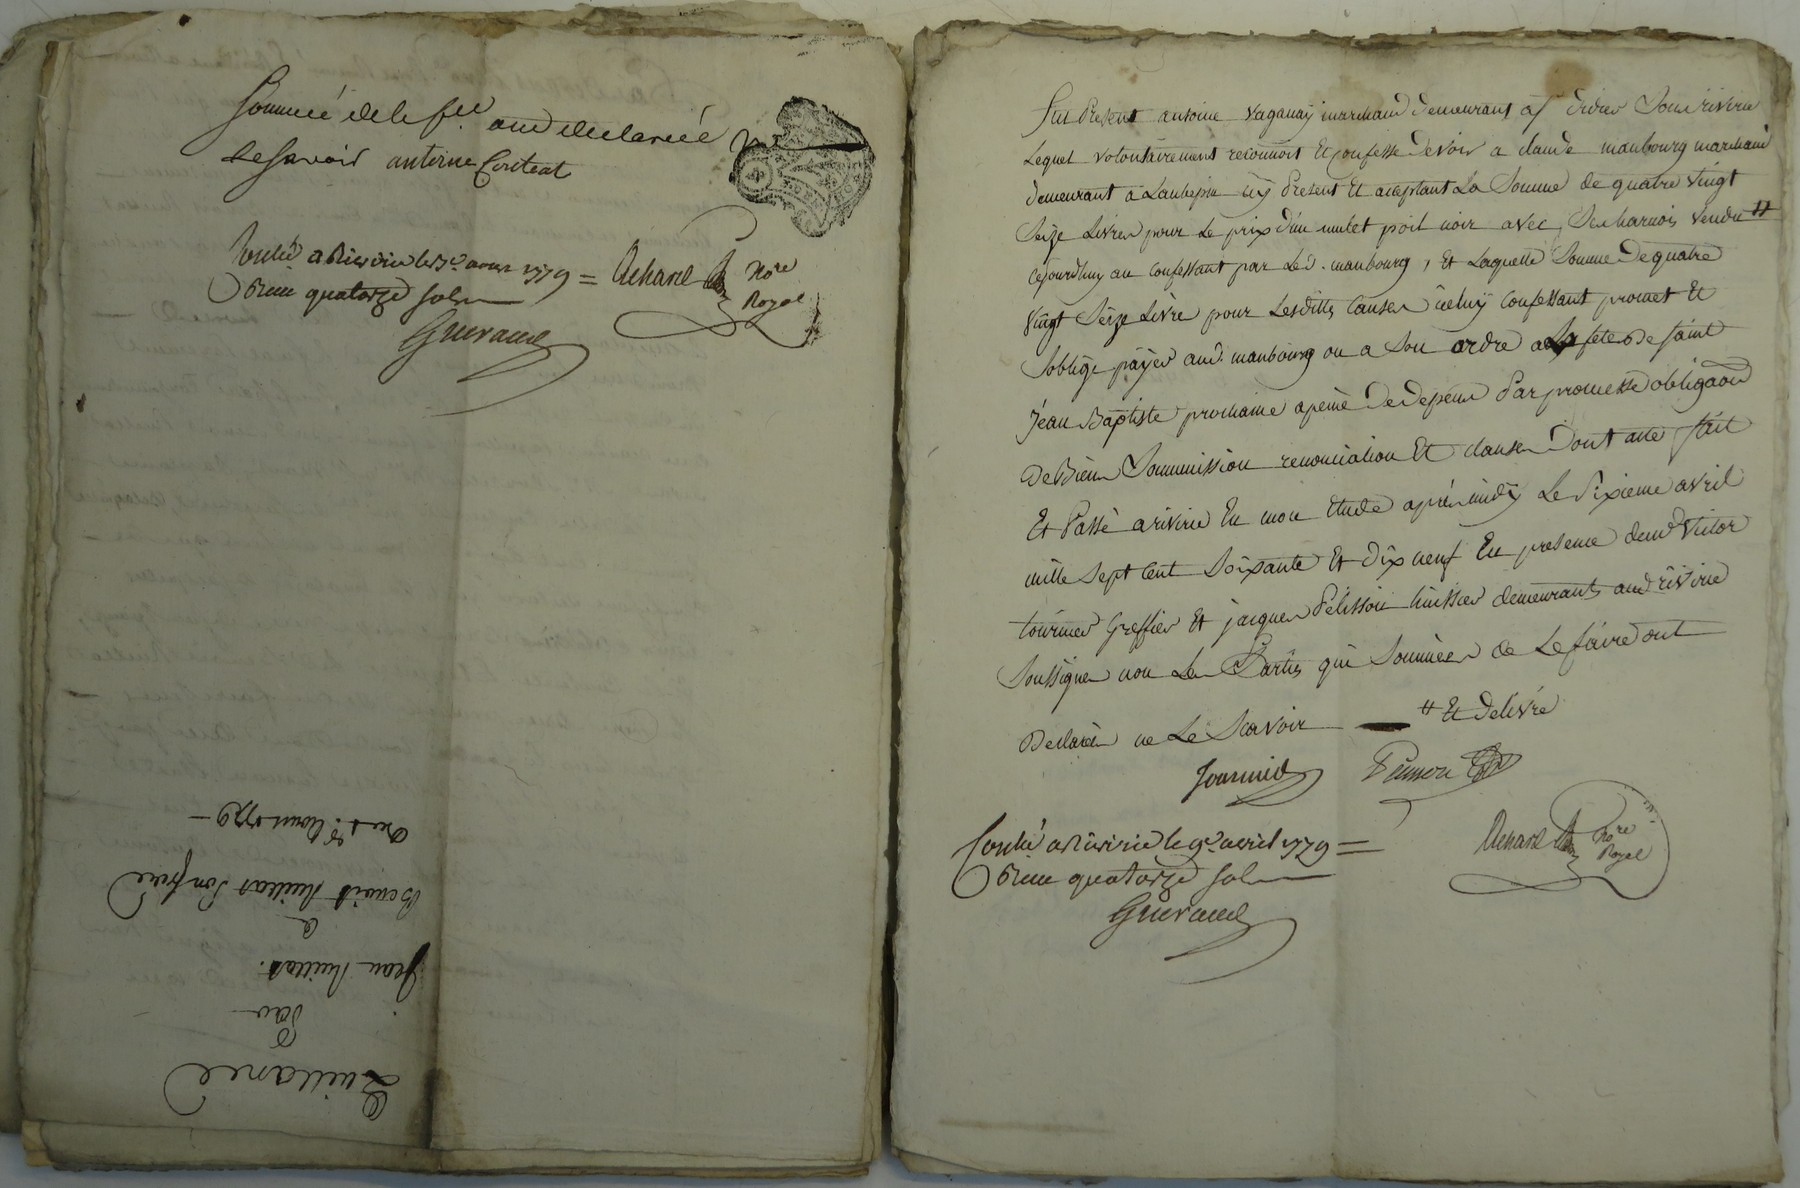 Sommé de le f.re ond declarée ne
Le Scavoir antiene Contrat
Conllé a Riverie le 7e avril 1779 =
Reçu quatorze sols
Gueraud
Achard Nore
Royal
Quittance
Par
jean
a
Benoit son frere
avril 1779
Fut Present antoine Vaganay marchand demeurant a St didier Sous riverie
Lequel volontairement reconnoit Et confesse devoir a claude maubourg marchand
demeurant a Laubepin icy Present Et aceptant La Somme de quatre vingt
Seize Livres pour Le prix d'un mulet poil noir avec Ses harnois vendu #
cejourdhuy au confessant par Led. maubourg, Et Laquelle Somme de quatre
vingt Seize Livre pour Lesdittes causes icelluy confessant promet Et
s'oblige payer aud. maubourg ou a Son ordre a La fete de Saint
Jean Baptiste prochaine apeine de depens Par promesse obligaon
de Biens Soummission renonciation Et clauses Dont acte fait
Et Passé a riverie En mon Etude après midy Le Sixieme avril
mille Sept Cent Soixante Et Dix neuf En presence de me Victor
tournier Greffier Et jacques Pélisson huissier demeurants aud riverie
Soussignes non Les Parties qui Sommées de Le faire ont
Declarées ne Le Scavoir # Et délivré
Tournier Pelisson
Conllé a Riverie le 9e avril 1779 =
Reçu quatorze sols
Gueraud
Achard Nore
Royal